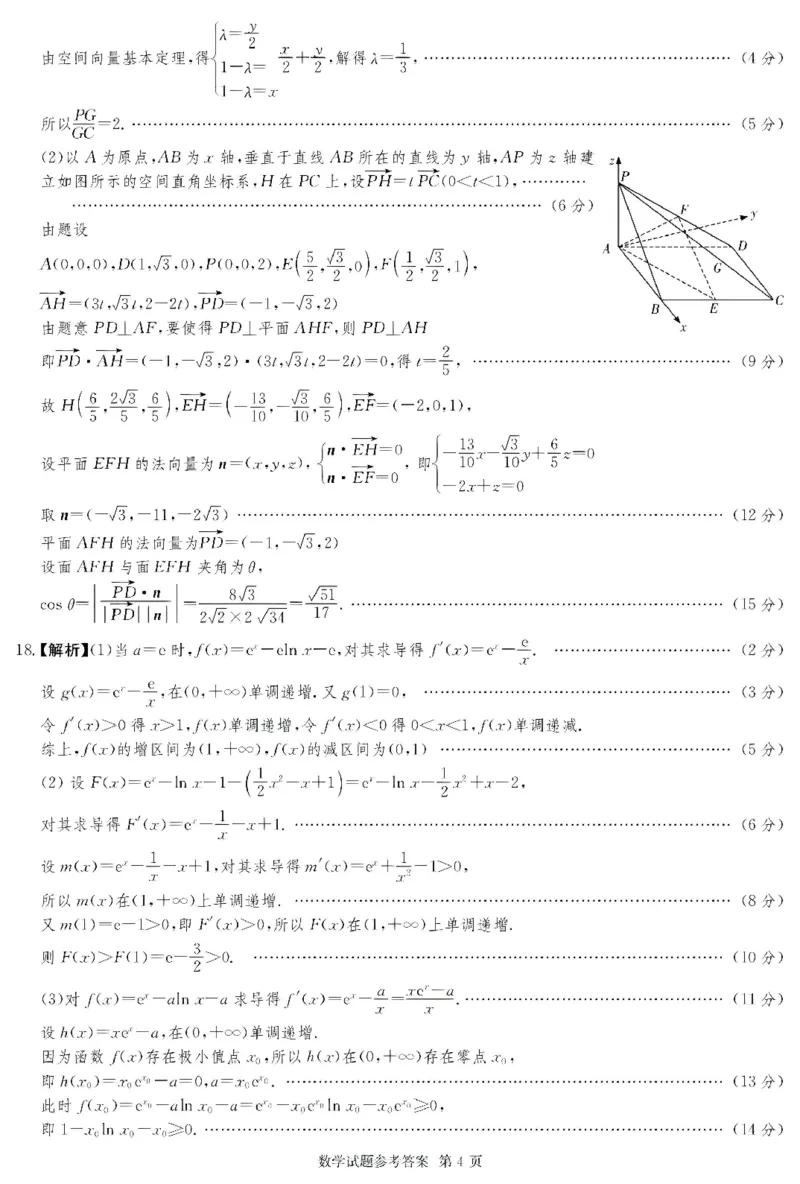 由空间向量基本定理,得{λ=y/2, 1-λ= x/2+y/2, 1-λ=x,解得λ=1/3, ……(4分)
所以PG/GC=2. ……(5分)
(2)以A为原点,AB为x轴,垂直于直线AB所在的直线为y轴,AP为z轴建
立如图所示的空间直角坐标系,H在PC上,设PH→=tPC→(0<t<1), ……
……(6分)
由题设
A(0,0,0),D(1,√3,0),P(0,0,2),E(5/2,√3/2,0),F(1/2,√3/2,1),
AH→=(3t,√3t,2-2t),PD→=(-1,-√3,2)
由题意PD⊥AF,要使得PD⊥平面AHF,则PD⊥AH
即PD→·AH→=(-1,-√3,2)·(3t,√3t,2-2t)=0,得t=2/5, ……(9分)
故H(6/5,2√3/5,6/5),EH→=(-13/10,-√3/10,6/5),EF→=(-2,0,1),
设平面EFH的法向量为n=(x,y,z),{n·EH→=0, n·EF→=0,即{-13/10x-√3/10y+6/5z=0, -2x+z=0
取n=(-√3,-11,-2√3) ……(12分)
平面AFH的法向量为PD→=(-1,-√3,2)
设面AFH与面EFH夹角为θ,
cos θ=|PD→·n/|PD→||n||=8√3/(2√2×2√34)=√51/17. ……(15分)
z
P
F
y
A
D
G
B
E
C
x
18.【解析】(1)当a=e时,f(x)=eˣ-eln x-e,对其求导得f′(x)=eˣ-e/x. ……(2分)
设g(x)=eˣ-e/x,在(0,+∞)单调递增.又g(1)=0, ……(3分)
令f′(x)>0得x>1,f(x)单调递增,令f′(x)<0得0<x<1,f(x)单调递减.
综上,f(x)的增区间为(1,+∞),f(x)的减区间为(0,1) ……(5分)
(2) 设F(x)=eˣ-ln x-1-(1/2x²-x+1)=eˣ-ln x-1/2x²+x-2,
对其求导得F′(x)=eˣ-1/x-x+1. ……(6分)
设m(x)=eˣ-1/x-x+1,对其求导得m′(x)=eˣ+1/x²-1>0,
所以m(x)在(1,+∞)上单调递增. ……(8分)
又m(1)=e-1>0,即F′(x)>0,所以F(x)在(1,+∞)上单调递增.
则F(x)>F(1)=e-3/2>0. ……(10分)
(3)对f(x)=eˣ-aln x-a求导得f′(x)=eˣ-a/x=(xeˣ-a)/x. ……(11分)
设h(x)=xeˣ-a,在(0,+∞)单调递增.
因为函数f(x)存在极小值点x₀,所以h(x)在(0,+∞)存在零点x₀,
即h(x₀)=x₀e^x₀-a=0,a=x₀e^x₀. ……(13分)
此时f(x₀)=e^x₀-aln x₀-a=e^x₀-x₀e^x₀ln x₀-x₀e^x₀≥0,
即1-x₀ln x₀-x₀≥0. ……(14分)
数学试题参考答案 第4页